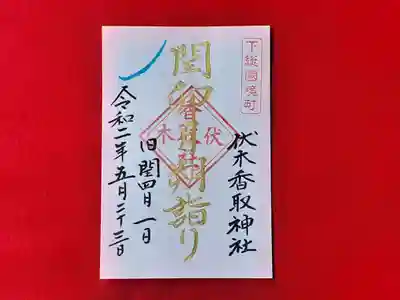 下総國境町
伏木香取神社
閏卯月朔詣り
旧閏四月一日
令和二年五月二十三日